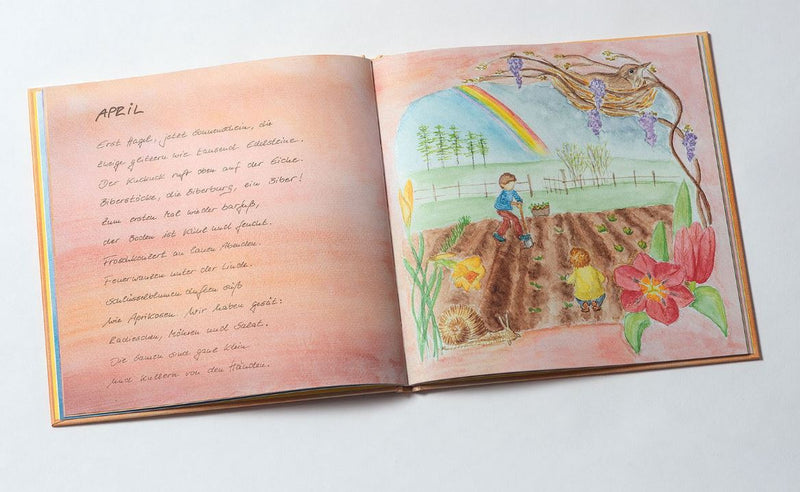 APRIL
Erst Hagel, jetzt Sonnenschein, die
Zweige glitzern wie tausend Edelsteine.
Der Kuckuck ruft oben auf der Eiche.
Biberstöcke, die Biberburg, ein Biber!
Zum ersten Mal wieder barfuß,
der Boden ist kühl und feucht.
Froschkonzert an lauen Abenden.
Feuerwanzen unter der Linde.
Schlüsselblumen duften süß
wie Aprikosen. Wir haben gesät:
Radieschen, Möhren und Salat.
Die Samen sind ganz klein
und kullern von den Händen.